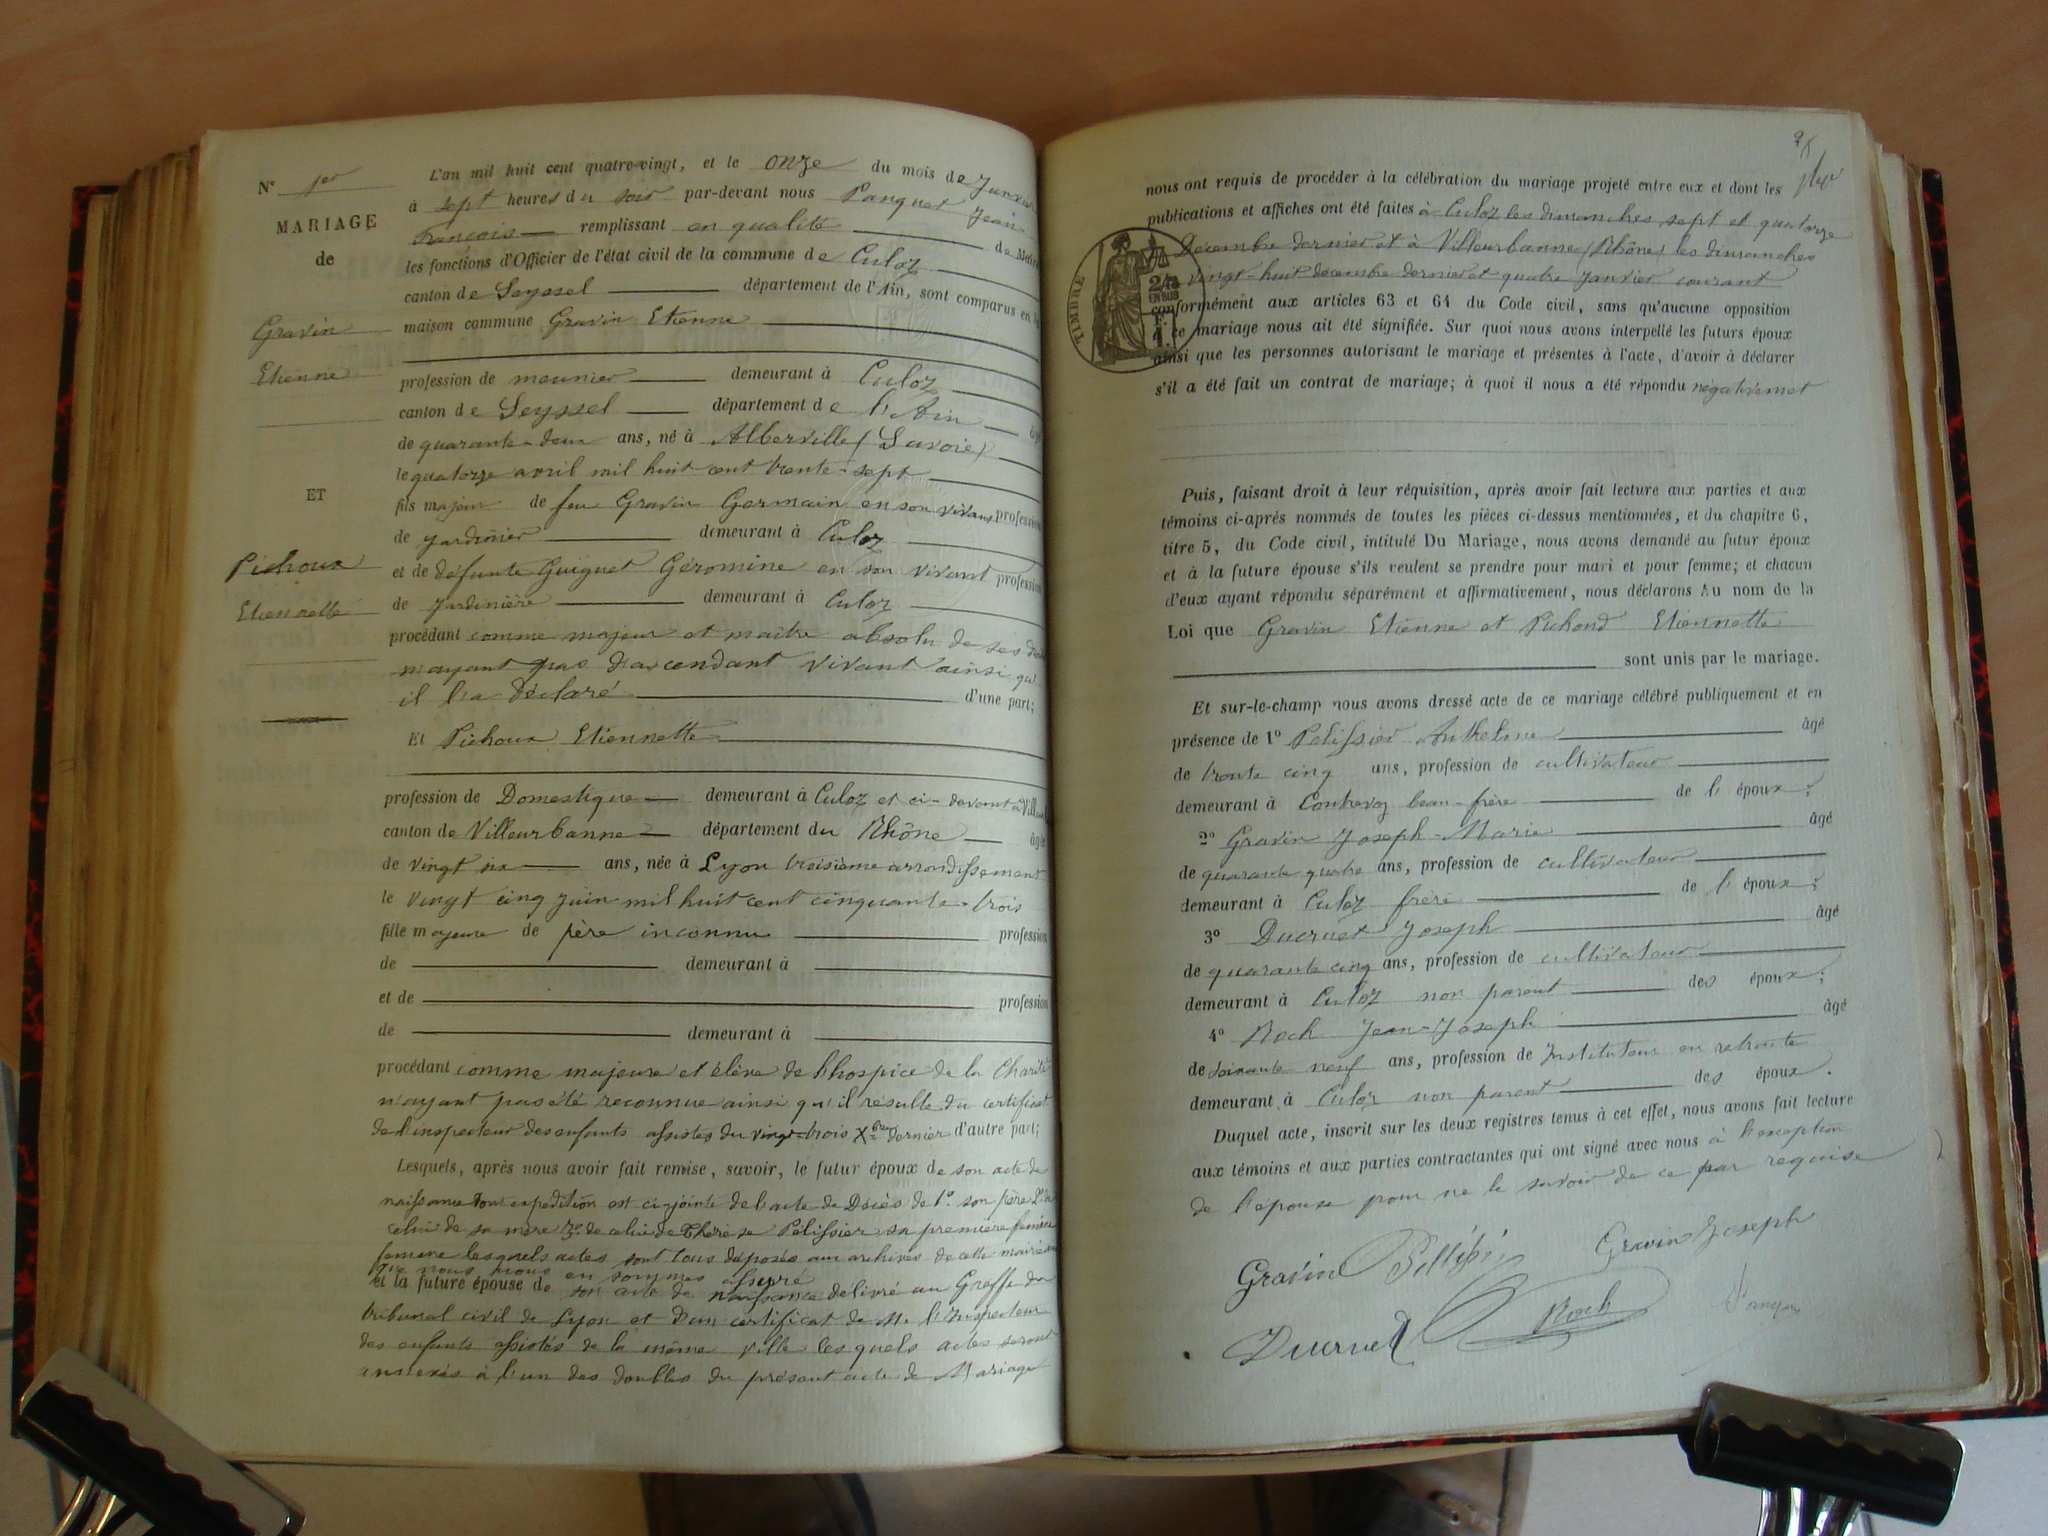 N° 1er
MARIAGE
de
Gravin
Etienne
ET
Pichoux
Etiennette
L'an mil huit cent quatre-vingt, et le onze du mois de Janvier
à sept heures du soir par-devant nous Panguet Jean
François remplissant en qualité de Maire
les fonctions d'Officier de l'état civil de la commune de Culoz
canton de Seyssel département de l'Ain, sont comparus en la
maison commune Gravin Etienne
profession de meunier demeurant à Culoz
canton de Seyssel département de l'Ain âgé
de quarante-deux ans, né à Alberville (Savoie)
le quatorze avril mil huit cent trente-sept
fils majeur de feu Gravin Germain en son vivant profession
de jardinier demeurant à Culoz
et de défunte Guiguet Géromine en son vivant profession
de jardinière demeurant à Culoz
procédant comme majeur et maître absolu de ses
n'ayant pas d'ascendant vivant ainsi qu'
il l'a déclaré d'une part;
Et Pichoux Etiennette
profession de Domestique demeurant à Culoz et ci-devant à
canton de Villeurbanne département du Rhône âgée
de vingt six ans, née à Lyon troisième arrondissement
le vingt cinq juin mil huit cent cinquante-trois
fille majeure de père inconnu profession
de demeurant à
et de profession
de demeurant à
procédant comme majeure et élève de l'hospice de la Charité
n'ayant pas été reconnue ainsi qu'il résulte du certificat
de l'inspecteur des enfants assistés du vingt-trois Xbre dernier d'autre part;
Lesquels, après nous avoir fait remise, savoir, le futur époux de son acte de
naissance dont expédition est ci-jointe de l'acte de Décès de 1° son père 2° de
celui de sa mère 3° de celui de Thérèse Pélissier sa première femme
femme lesquels actes sont tous déposés aux archives de cette mairie
que nous nous en sommes assuré
et la future épouse de son acte de naissance délivré au Greffe du
tribunal civil de Lyon et d'un certificat de M. l'Inspecteur
des enfants assistés de la même ville lesquels actes seront
annexés à l'un des doubles du présent acte de Mariage
nous ont requis de procéder à la célébration du mariage projeté entre eux et dont les
publications et affiches ont été faites à Culoz les dimanches sept et quatorze
Décembre dernier et à Villeurbanne (Rhône) les dimanches
vingt-huit décembre dernier et quatre Janvier courant
TIMBRE
conformément aux articles 63 et 64 du Code civil, sans qu'aucune opposition
à ce mariage nous ait été signifiée. Sur quoi nous avons interpellé les futurs époux
ainsi que les personnes autorisant le mariage et présentes à l'acte, d'avoir à déclarer
s'il a été fait un contrat de mariage; à quoi il nous a été répondu négativement
Puis, faisant droit à leur réquisition, après avoir fait lecture aux parties et aux
témoins ci-après nommés de toutes les pièces ci-dessus mentionnées, et du chapitre 6,
titre 5, du Code civil, intitulé Du Mariage, nous avons demandé au futur époux
et à la future épouse s'ils veulent se prendre pour mari et pour femme; et chacun
d'eux ayant répondu séparément et affirmativement, nous déclarons Au nom de la
Loi que Gravin Etienne et Pichond Etiennette
sont unis par le mariage.
Et sur-le-champ nous avons dressé acte de ce mariage célébré publiquement et en
présence de 1° Pelissier Anthelme âgé
de trente cinq ans, profession de cultivateur
demeurant à Contrevoz beau-frère de l'époux;
2° Gravin Joseph-Marie âgé
de quarante quatre ans, profession de cultivateur
demeurant à Culoz frère de l'époux;
3° Ducruet Joseph âgé
de quarante cinq ans, profession de cultivateur
demeurant à Culoz non parent des époux;
4° Roch Jean-Joseph âgé
de soixante neuf ans, profession de Instituteur en retraite
demeurant à Culoz non parent des époux.
Duquel acte, inscrit sur les deux registres tenus à cet effet, nous avons fait lecture
aux témoins et aux parties contractantes qui ont signé avec nous à l'exception
de l'épouse pour ne le savoir de ce par requise
Gravin Pellissier Gravin Joseph
Ducruet Roch